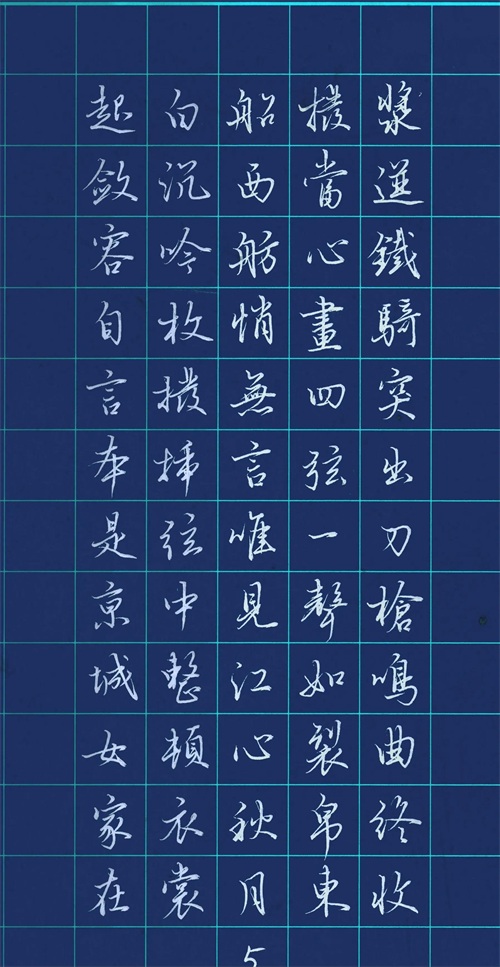 漿迸鐵騎突出刀槍鳴曲終收
撥當心畫四弦一聲如裂帛東
船西舫悄無言唯見江心秋月
白沉吟放撥插弦中整頓衣裳
起斂容自言本是京城女家在
5